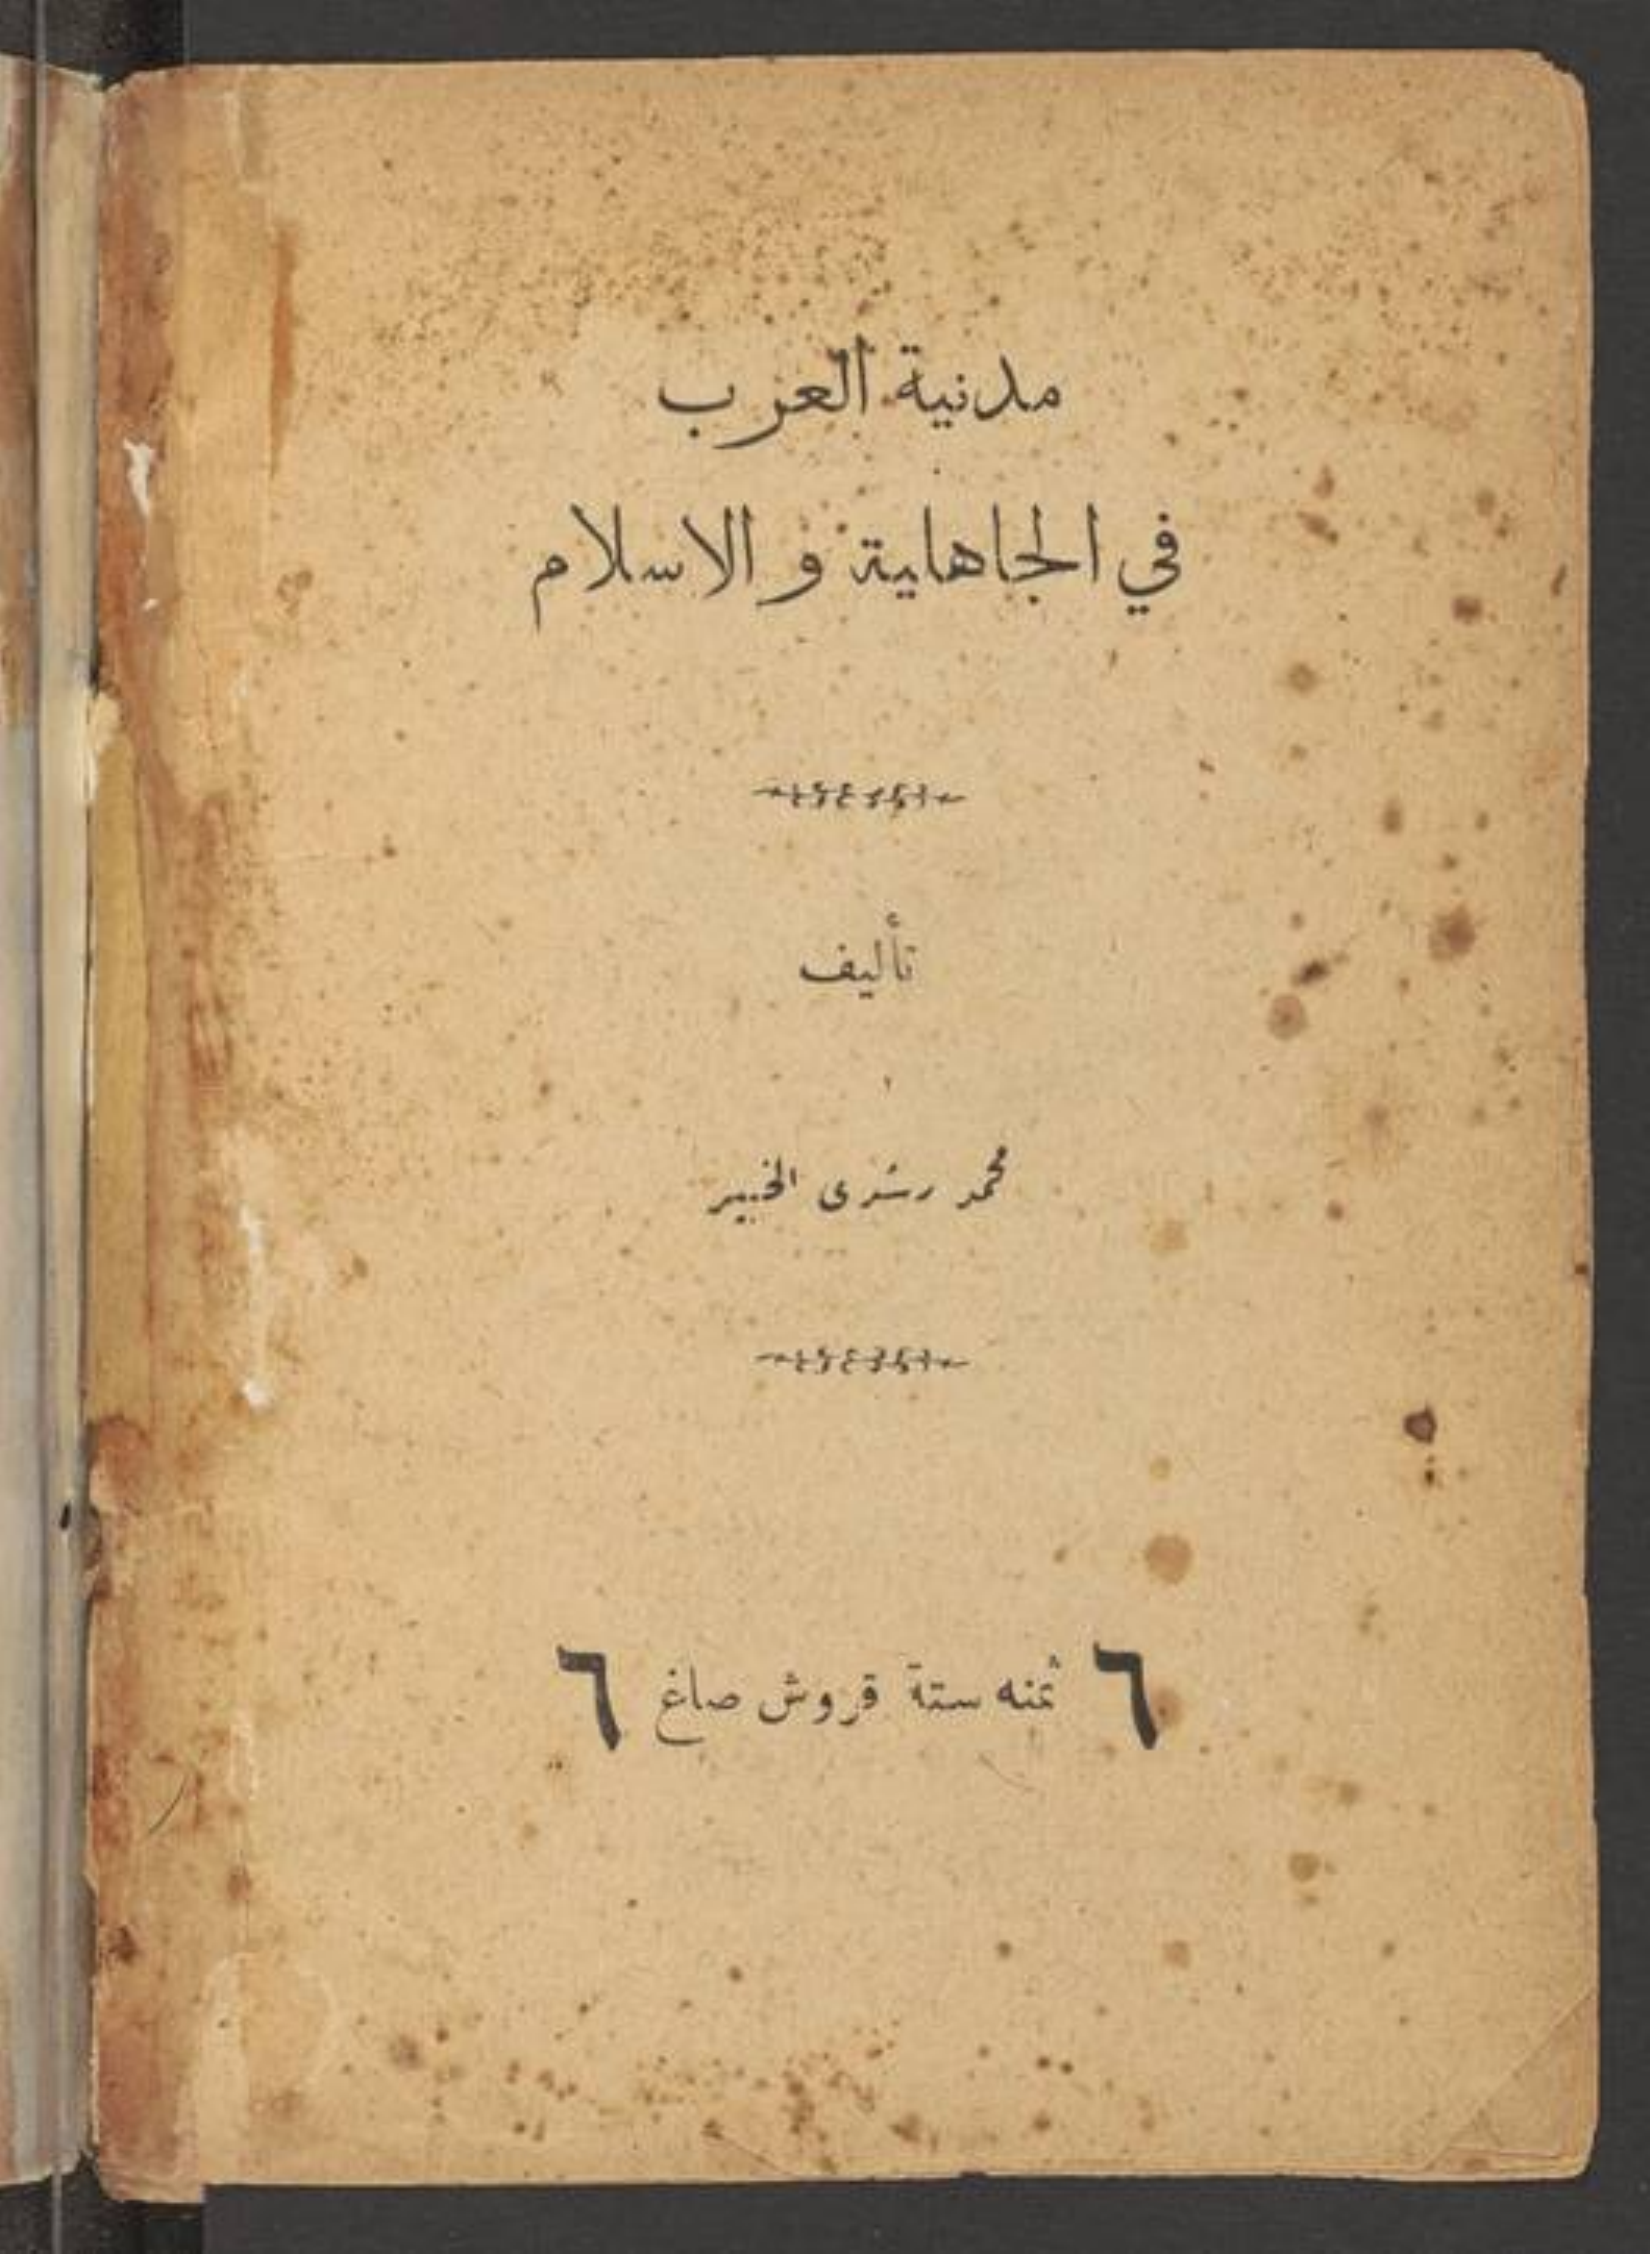 مدنية العرب
في الجاهلية و الاسلام
تأليف
محمد رشدى الخبير
٦ ثمنه ستة قروش صاغ ٦